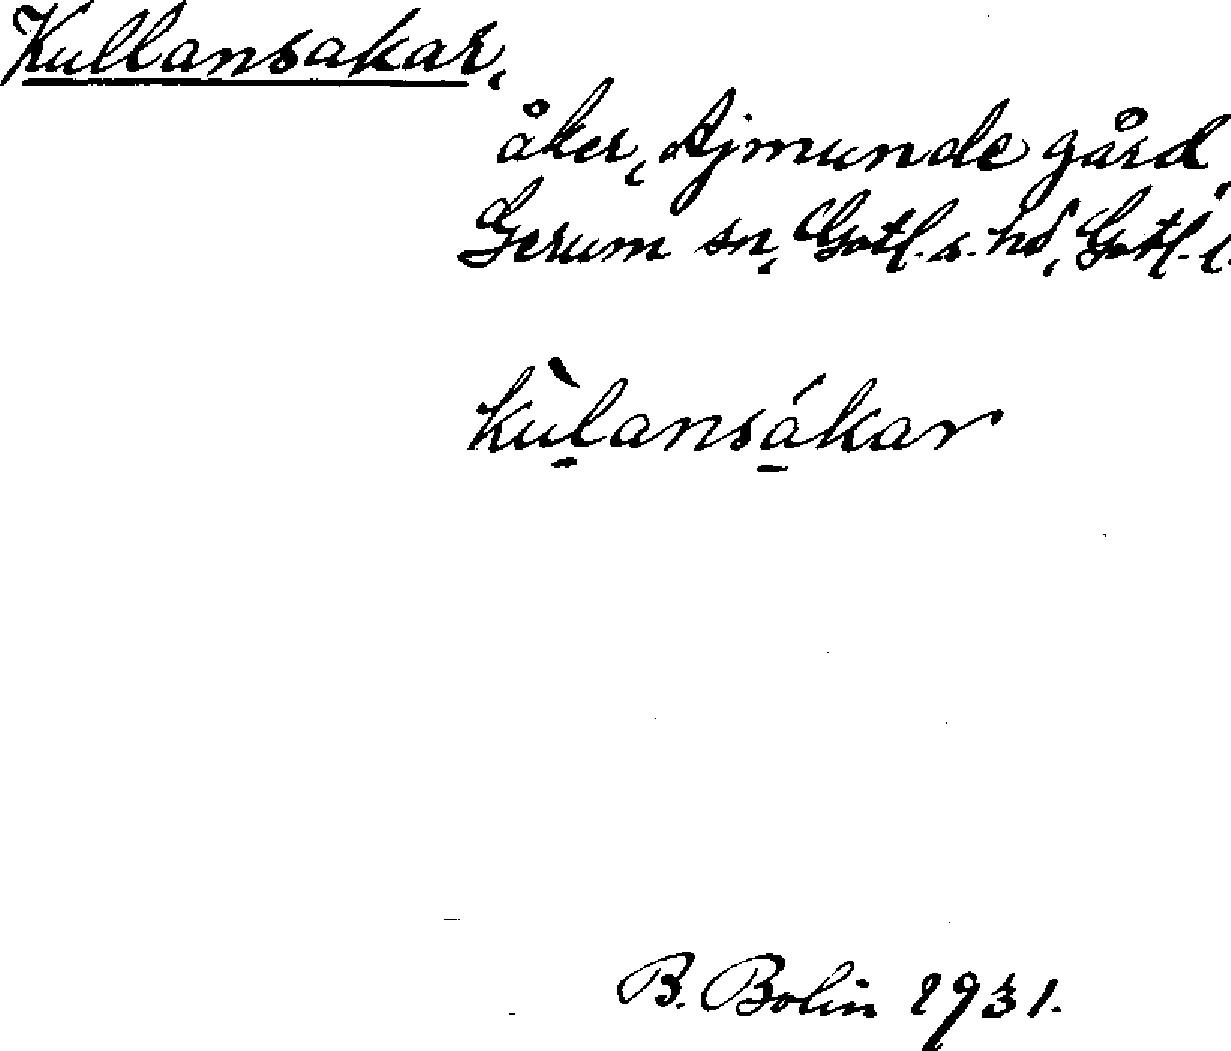 Kullansakar,
åker, Ajmunde gård,
Gerum sn, Gotl. s. hd, Gotl. l.
kùlansákar
B. Bolin 1931.